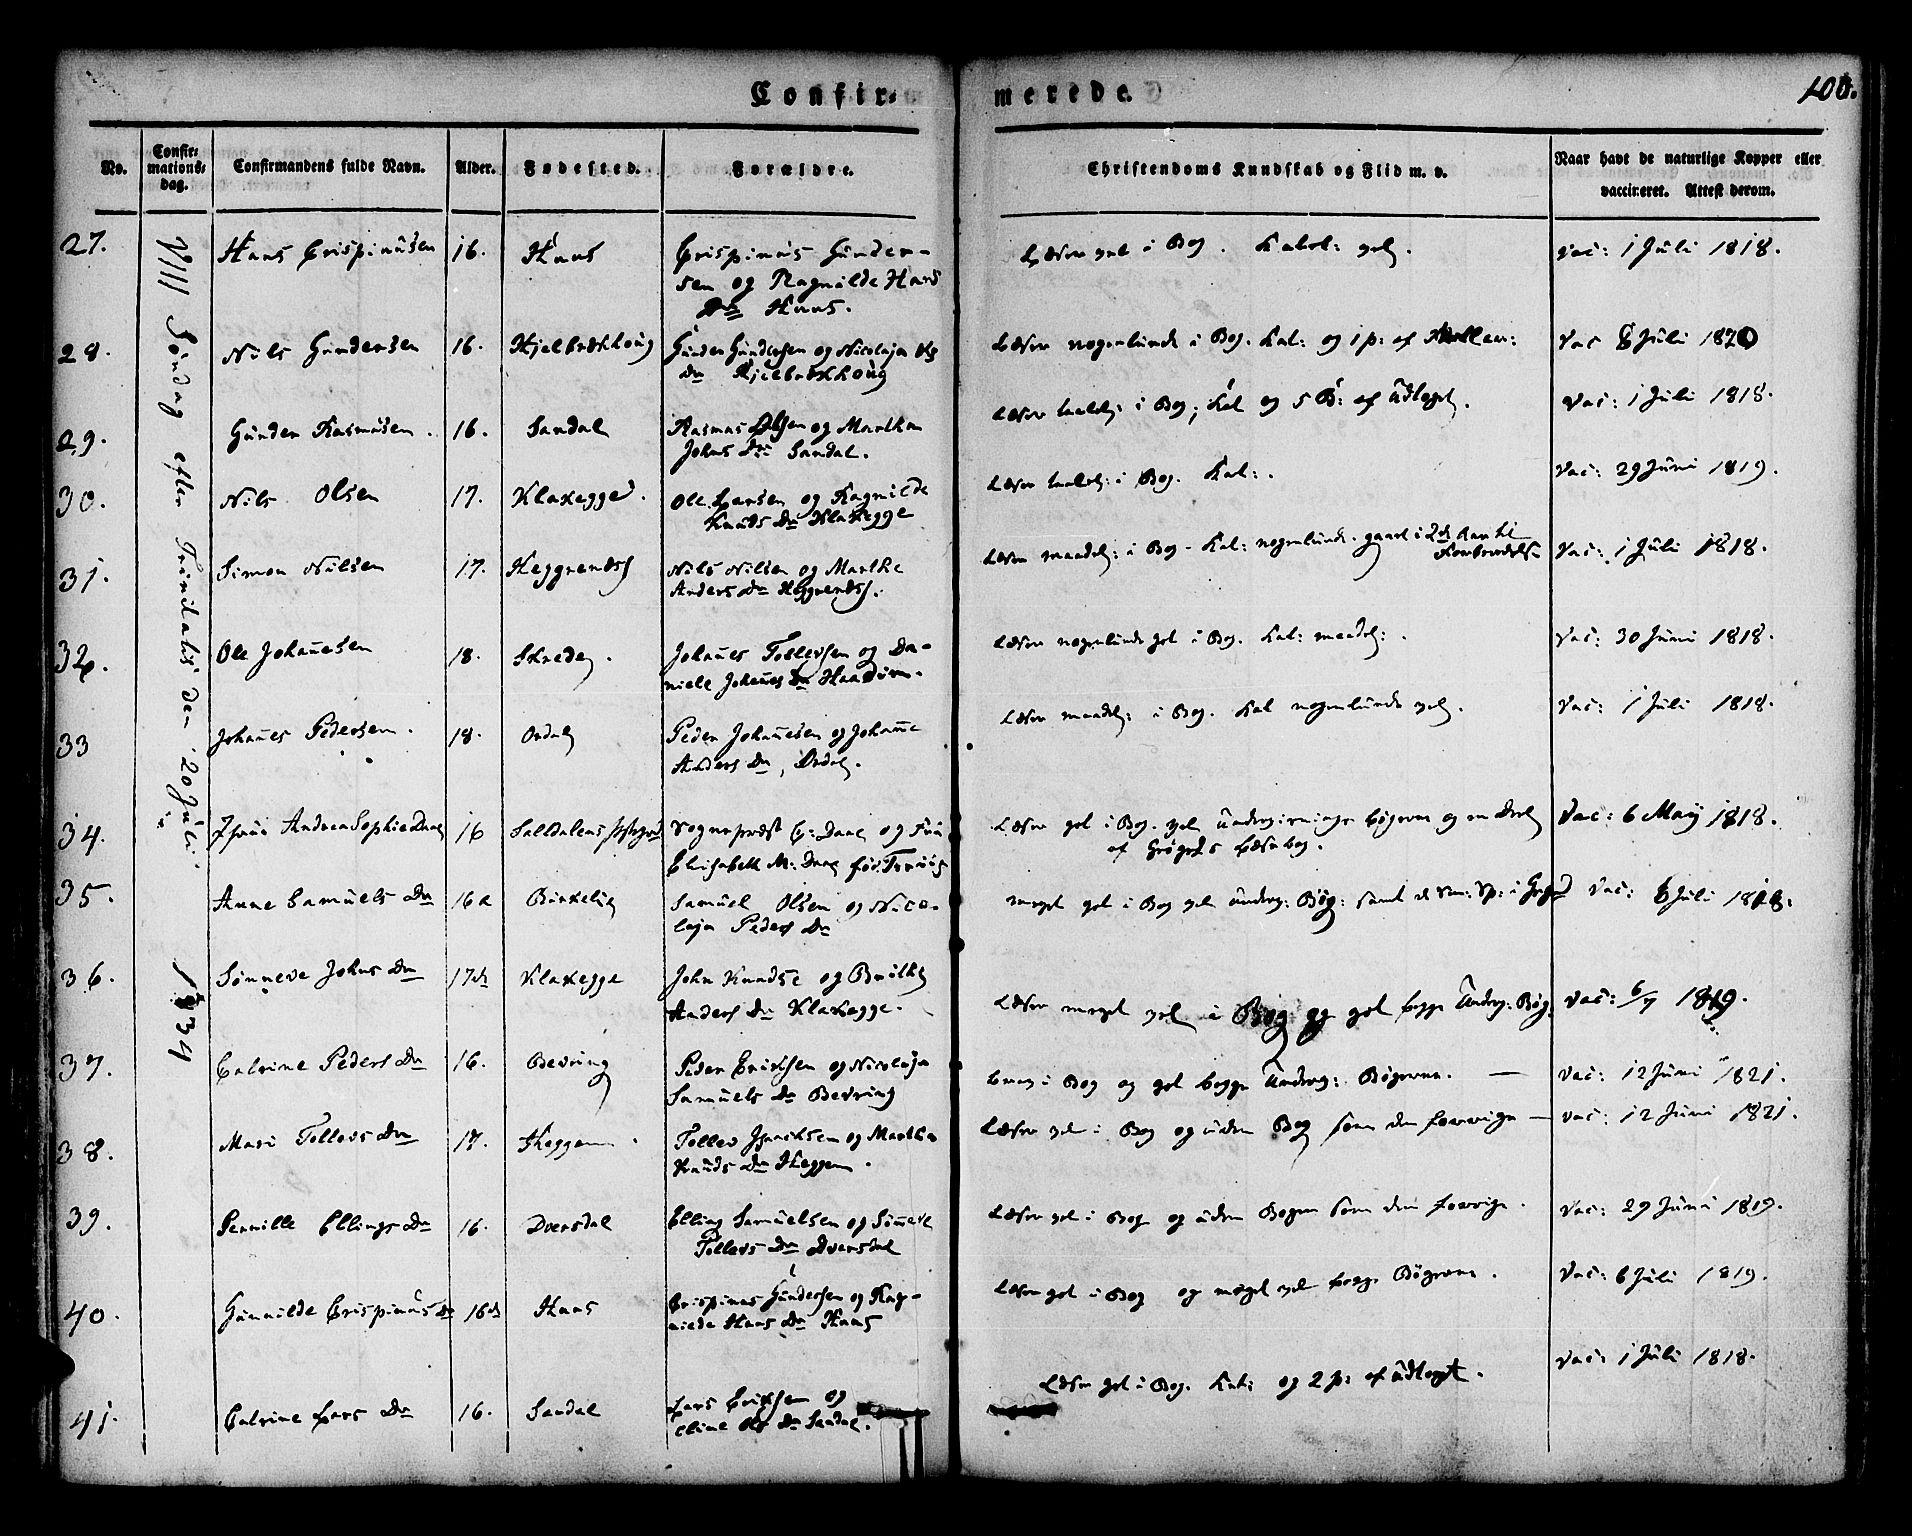 Confir-
merede.
100.
No.
Confir-
mations-
dag.
Confirmandens fulde Navn.
Alder.
Fødested.
Forældre.
Christendoms Kundskab og Flid m. v.
Naar havt de naturlige Kopper eller
vaccineret. Attest derom.
VIII Søndag efter Trinitatis den 20 Juli 1834
27. Hans Crispinusen 16. Haus
Crispinus Gunder-
sen og Ragnilde Hans
Dr Haus.
Læser gol i Bog. Katel: gol.
vac: 1 Juli 1818.
28. Nils Gundersen 16. Hjelbrækhoug
Gunder Gundersen og Nicolaja
Dr Hjelbrækhoug
Læser nogenlunde i Bog. Kat: og 1 p: af
Vac 6 Juli 1820
29. Gunder Rasmusen. 16. Sandal
Rasmus Olsen og Marthe
Johns Dr Sandal.
Læser i Bog, Kat og 5 B: af Udtoget.
Vac: 1 Juli 1818.
30. Nils Olsen 17. Klakegge.
Ole Larsen og Ragnilde
Knuds Dr Klakegge
Læser i Bog. Kat:.
Vac: 29 Juni 1819.
31. Simon Nilsen 17. Heggrends
Nils Nilsen og Marthe
Anders Dr Heggrends.
Læser maadel: i Bog - Kat: nogenlunde. gaaet i 2 Aar til
Forberedelse
Vac: 1 Juli 1818.
32. Ole Johannesen 18. Skrede.
Johannes Tollevsen og Da-
niele Johannes Dr
Læser nogenlunde gol i Bog. Kat: maadel:.
Vac: 30 Juni 1818.
33 Johannes Pedersen. 18. Ordal
Peder Johannesen og Johanne
Anders Dr, Ordal.
Læser maadel: i Bog. Kat nogenlunde gol.
Vac: 1 Juli 1818.
34. Andrea Sophie Daae 16 Saltdalens
Sognepræst C: Daae og Fru
Elisabeth M: Daae
Læser gol i Bog. gol Undervisnings Bøgerne og en Deel
af Læsebog.
Vac: 6 May 1818.
35. Anne Samuels Dr 16 Birkelie
Samuel Olsen og Nico-
laja Peders Dr
meget gol i Bog gol Underv: Bøg: samt
Vac: 6 Juli 1818.
36. Sønneve Johns Dr 17 Klakegge
John Knudse og Brithe
Anders Dr Klakegge.
Læser meget gol i Bog og gol begge Underv: Bøg.
Vac: 6/7 1819.
37. Catrine Peders Dr 16. Bevring
Peder Ericksen og Nicolaja
Samuels Dr Bevring
i Bog og gol begge Underv: Bøgerne. —
Vac: 12 Juni 1821.
38. Mari Tollevs Dr 17. Heggem.
Tollev og Marthe
Knuds Dr Heggem.
Læser gol i Bog og uden Bog som den forrige —
Vac: 12 Juni 1821.
39. Pernille Ellings Dr 16. Dvergsdal
Elling Samuelsen og Sønneve
Tollevs Dr Dvergsdal
Læser gol i Bog og uden Bogen som den forrige.
Vac: 29 Juni 1819.
40. Gunnilde Crispinus Dr 16 Haus
Crispinus Gundersen og Rag-
nilde Hans Dr Haus
Læser gol i Bog og meget gol begge Bøgerne.
Vac: 6 Juli 1819.
41. Catrine Lars Dr 16. Sandal
Lars Ericksen og
Eline Ols Dr Sandal.
Læser gol i Bog. Kat: og 2 p: af Udtoget.
Vac: 1 Juli 1818.